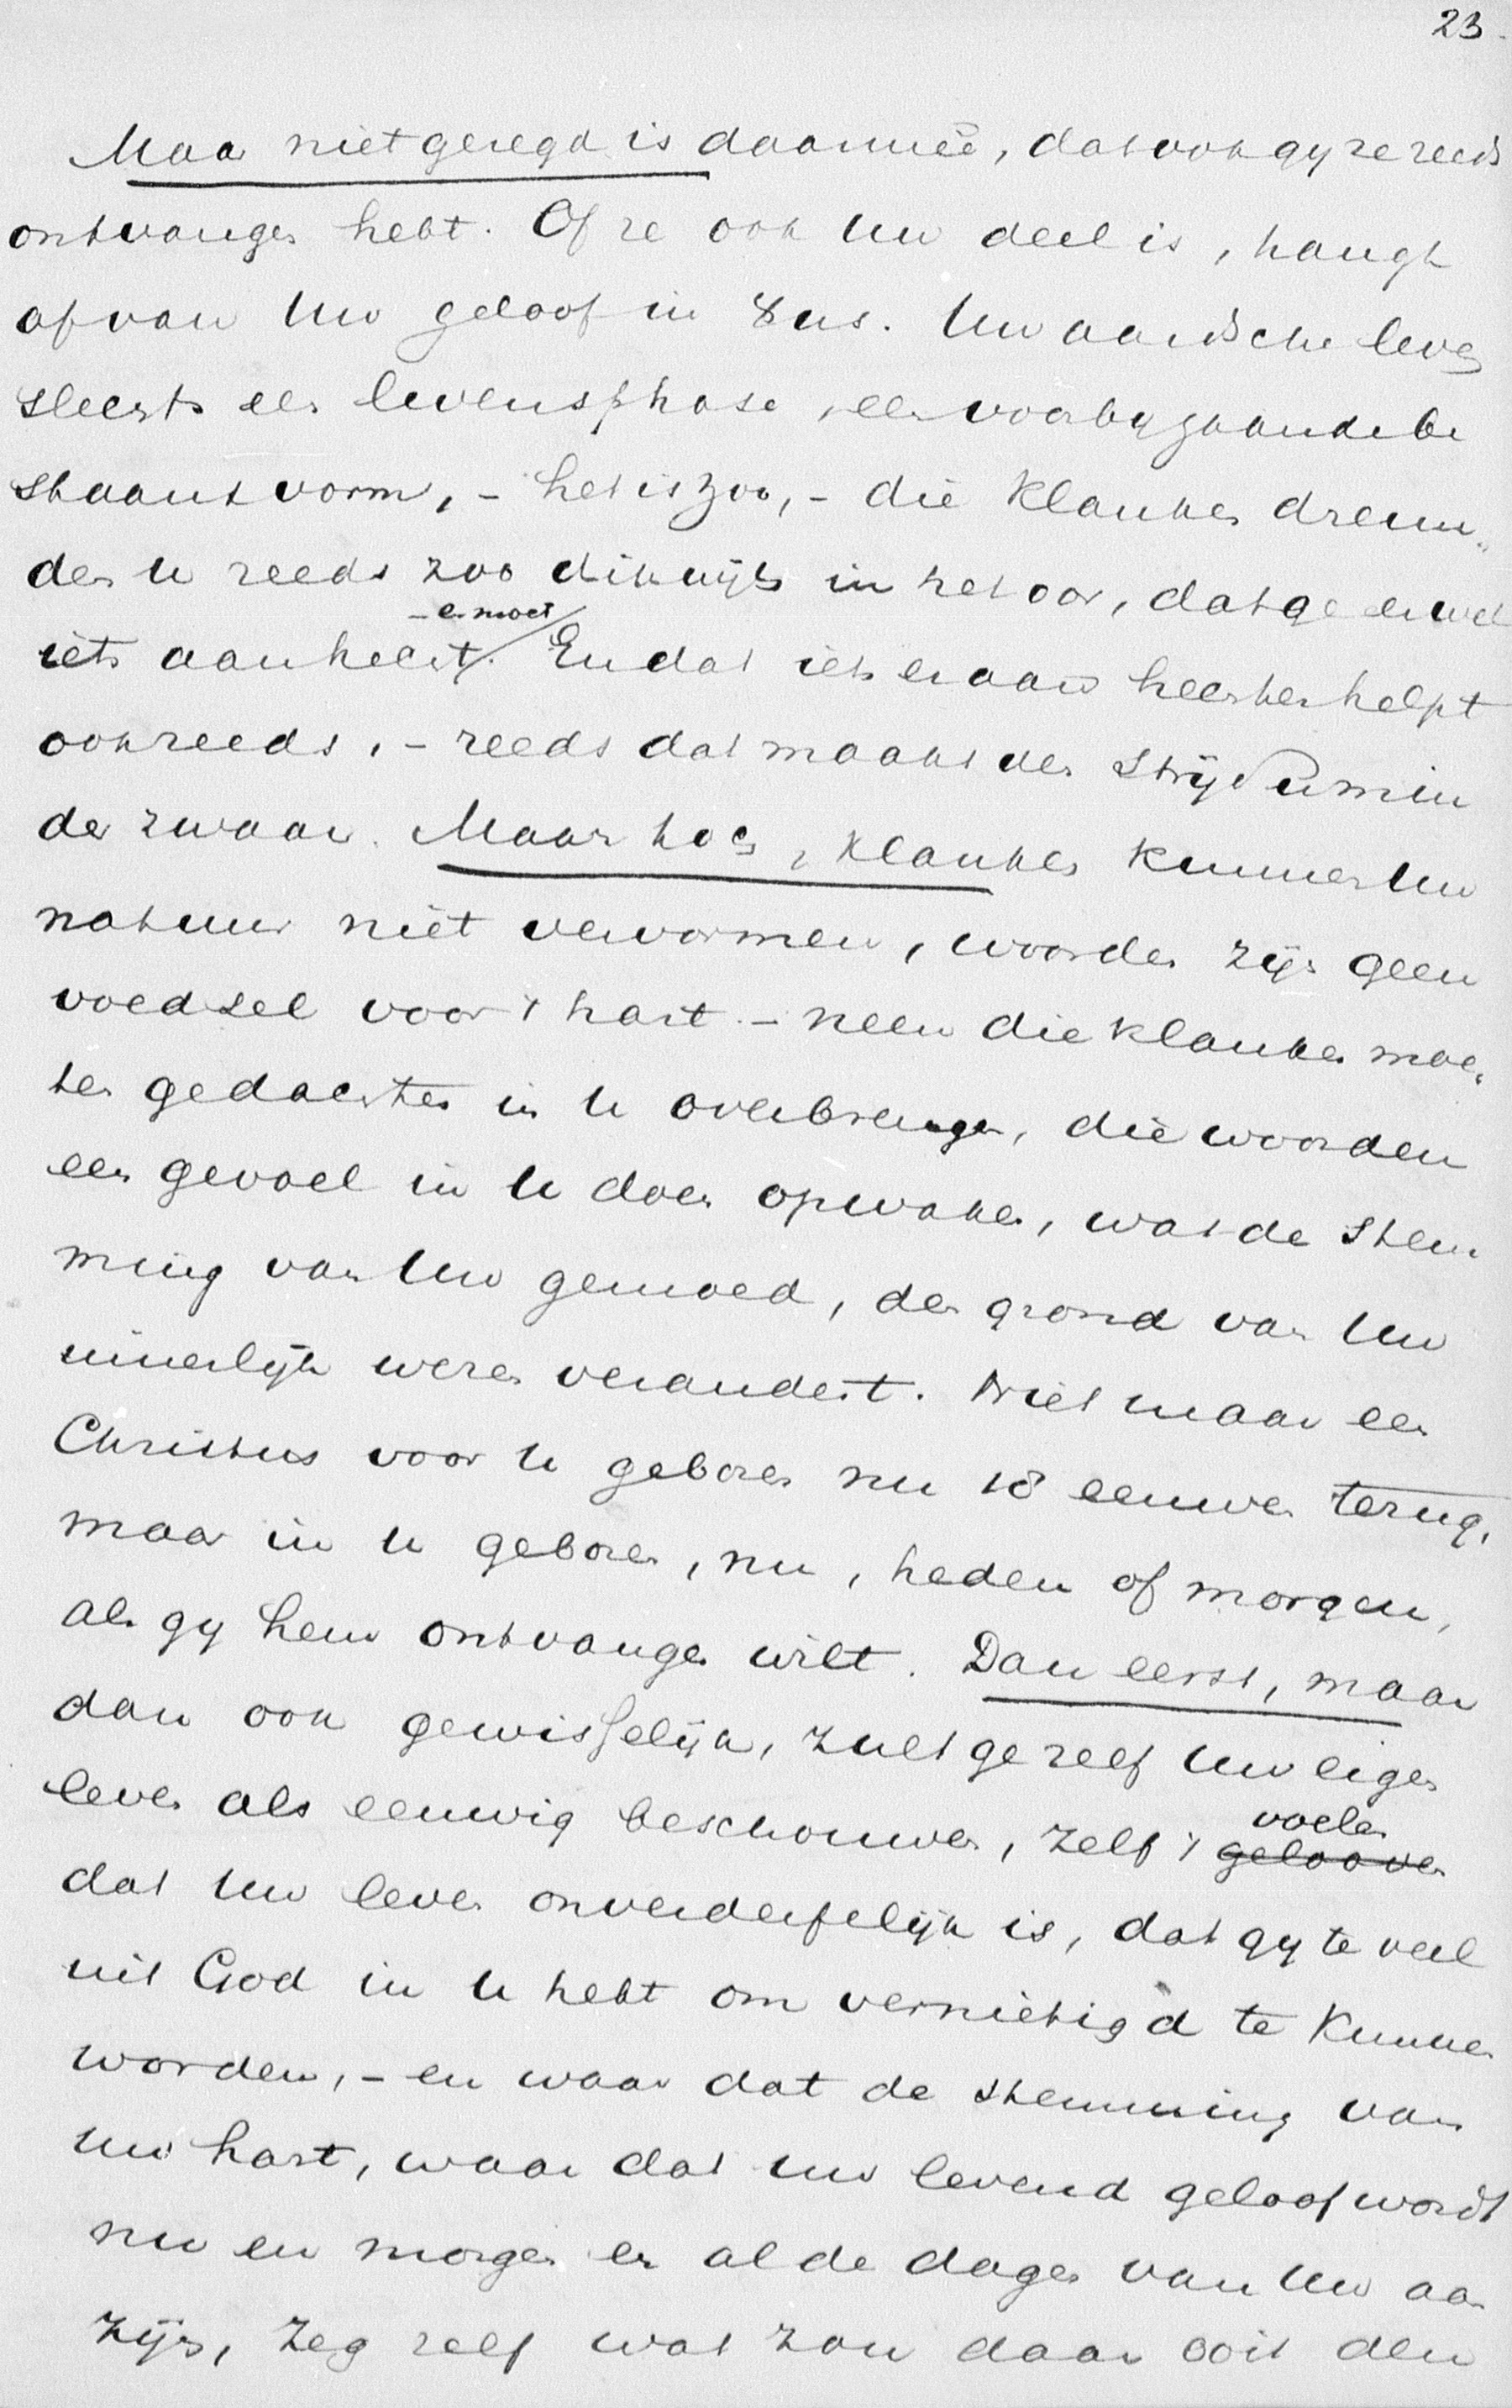 23.
Maar niet gezegd is daarmeê, dat ook gy ze reeds
ontvangen hebt. Of ze ook Uw deel is, hangt
af van Uw geloof in Zus. Uw aardsche leven
slechts een levensphase, een voorbygaande be
staansvorm, - het is zoo, - die klanken dreun„
den U reeds zoo dikwijls in het oor, dat ge er wel
- en moet
iets aan hecht. En dat iets eraan hechten helpt
ook reeds, - reeds dat maakt den strijd U min
der zwaar. Maar toch, klanken kunnen Uw
natuur niet vervormen, woorden zijn geen
voedsel voor 't hart. - neen die klanken moe„
ten gedachten in U overbrengen, die woorden
een gevoel in U doen opwaken, wat de stem
ming van Uw gemoed, den grond van Uw
innerlijk wezen verandert. Niet maar een
Christus voor U geboren nu 18 eeuwen terug,
maar in U geboren, nu, heden of morgen,
als gy hem ontvangen wilt. Dan eerst, maar
dan ook gewisselijk, zult ge zelf Uw eigen
leven als eeuwig beschouwen, zelf 't gelooven
voelen
dat Uw leven onverderfelijk is, dat gy te veel
uit God in U hebt om vernietigd te kunnen
worden, - en waar dat de stemming van
uw hart, waar dat uw levend geloof wordt
nu en morgen en al de dagen van Uw aan
zijn, zeg zelf wat zou daar ooit den